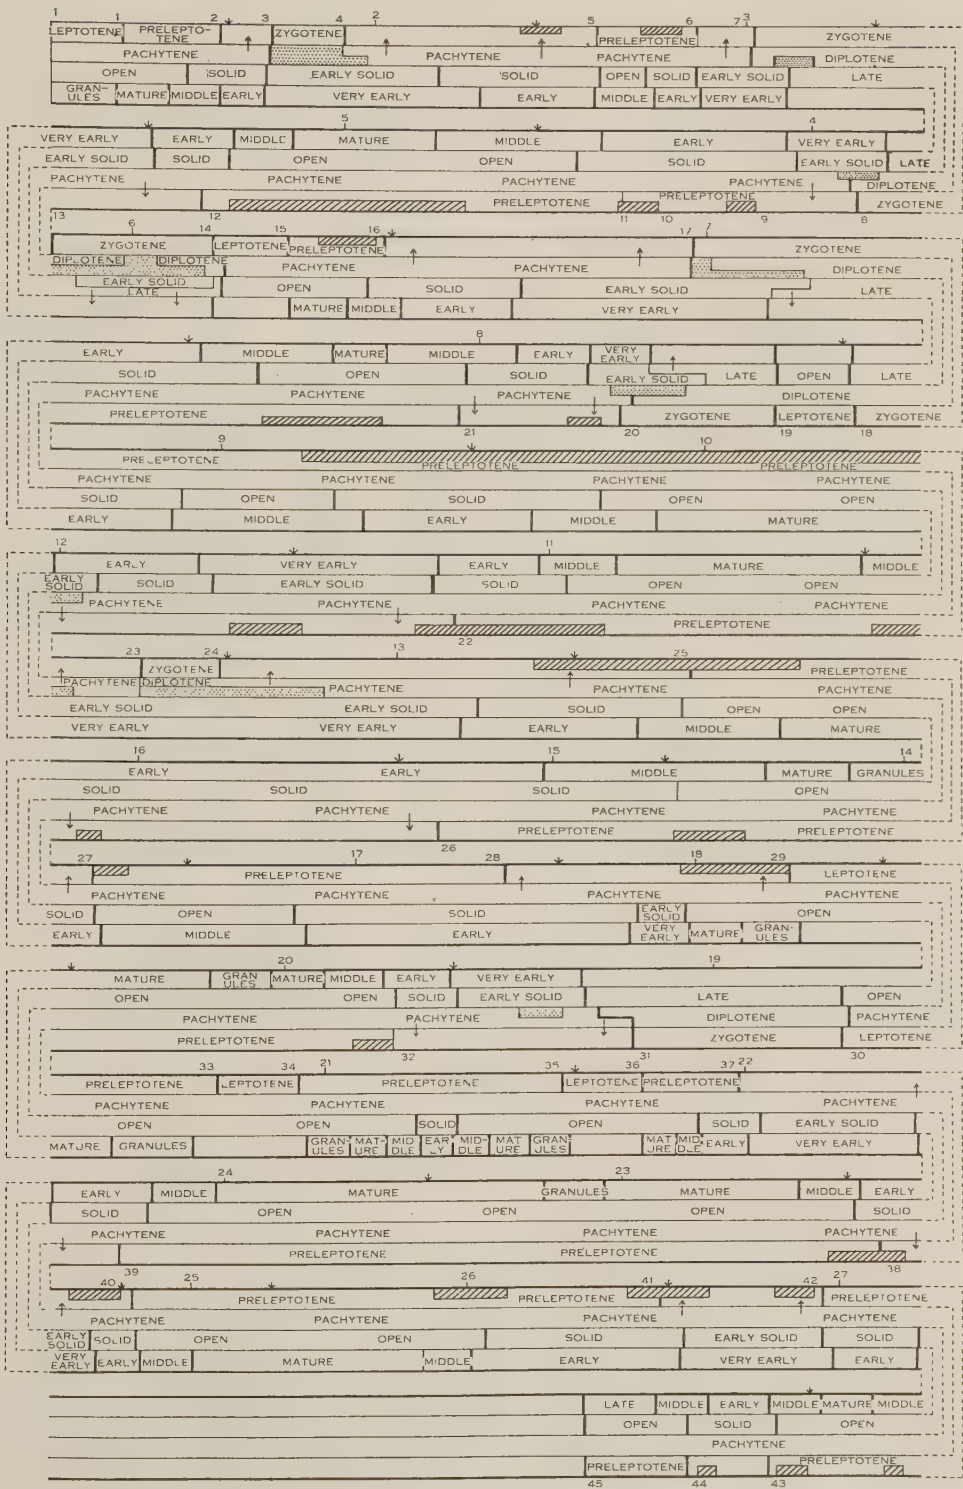 1 1 2 3 4 2 5 6 7 3
LEPTOTENE PRELEPTO- TENE ZYGOTENE PRELEPTOTENE ZYGOTENE
PACHYTENE PACHYTENE PACHYTENE DIPLOTENE
OPEN SOLID EARLY SOLID SOLID OPEN SOLID EARLY SOLID LATE
GRAN- ULES MATURE MIDDLE EARLY VERY EARLY EARLY MIDDLE EARLY VERY EARLY
5 4
VERY EARLY EARLY MIDDLE MATURE MIDDLE EARLY VERY EARLY
EARLY SOLID SOLID OPEN OPEN SOLID EARLY SOLID LATE
PACHYTENE PACHYTENE PACHYTENE PACHYTENE DIPLOTENE
PRELEPTOTENE PRELEPTOTENE ZYGOTENE
13 6 12 11 10 9 8
14 15 16 17 7
ZYGOTENE LEPTOTENE PRELEPTOTENE ZYGOTENE
DIPLOTENE DIPLOTENE PACHYTENE PACHYTENE DIPLOTENE
EARLY SOLID OPEN SOLID EARLY SOLID LATE
LATE MATURE MIDDLE EARLY VERY EARLY
8
EARLY MIDDLE MATURE MIDDLE EARLY VERY EARLY
SOLID OPEN SOLID EARLY SOLID LATE OPEN LATE
PACHYTENE PACHYTENE PACHYTENE DIPLOTENE
PRELEPTOTENE ZYGOTENE LEPTOTENE ZYGOTENE
21 20 19 18
9 10
PRELEPTOTENE PRELEPTOTENE PRELEPTOTENE
PACHYTENE PACHYTENE PACHYTENE PACHYTENE
SOLID OPEN SOLID OPEN OPEN
EARLY MIDDLE EARLY MIDDLE MATURE
12 11
EARLY VERY EARLY EARLY MIDDLE MATURE MIDDLE
EARLY SOLID SOLID EARLY SOLID SOLID OPEN OPEN
PACHYTENE PACHYTENE PACHYTENE PACHYTENE
PRELEPTOTENE
22
23 24 13 25
ZYGOTENE PRELEPTOTENE
PACHYTENE DIPLOTENE PACHYTENE PACHYTENE PACHYTENE
EARLY SOLID EARLY SOLID SOLID OPEN OPEN
VERY EARLY VERY EARLY EARLY MIDDLE MATURE
16 15 14
EARLY EARLY MIDDLE MATURE GRANULES
SOLID SOLID SOLID OPEN
PACHYTENE PACHYTENE PACHYTENE PACHYTENE
PRELEPTOTENE PRELEPTOTENE
26
27 17 28 18 29
PRELEPTOTENE LEPTOTENE
PACHYTENE PACHYTENE PACHYTENE PACHYTENE
SOLID OPEN SOLID EARLY SOLID OPEN
EARLY MIDDLE EARLY VERY EARLY MATURE GRAN- ULES
20 19
MATURE GRAN ULES MATURE MIDDLE EARLY VERY EARLY
OPEN OPEN SOLID EARLY SOLID LATE OPEN
PACHYTENE PACHYTENE DIPLOTENE PACHYTENE
PRELEPTOTENE ZYGOTENE LEPTOTENE
32 31 30
33 34 21 35 36 37 22
PRELEPTOTENE LEPTOTENE PRELEPTOTENE LEPTOTENE PRELEPTOTENE
PACHYTENE PACHYTENE PACHYTENE PACHYTENE
OPEN OPEN SOLID OPEN SOLID EARLY SOLID
MATURE GRANULES GRAN- ULES MAT- URE MID DLE EAR LY MID- DLE MAT URE GRAN- ULES MAT URE MID DLE EARLY VERY EARLY
24 23
EARLY MIDDLE MATURE GRANULES MATURE MIDDLE EARLY
SOLID OPEN OPEN OPEN SOLID
PACHYTENE PACHYTENE PACHYTENE PACHYTENE
PRELEPTOTENE PRELEPTOTENE
39 38
40 25 26 41 42 27
PRELEPTOTENE PRELEPTOTENE PRELEPTOTENE
PACHYTENE PACHYTENE PACHYTENE PACHYTENE
EARLY SOLID SOLID OPEN OPEN SOLID EARLY SOLID SOLID
VERY EARLY EARLY MIDDLE MATURE MIDDLE EARLY VERY EARLY EARLY
LATE MIDDLE EARLY MIDDLE MATURE MIDDLE
OPEN SOLID OPEN
PACHYTENE
PRELEPTOTENE PRELEPTOTENE
45 44 43